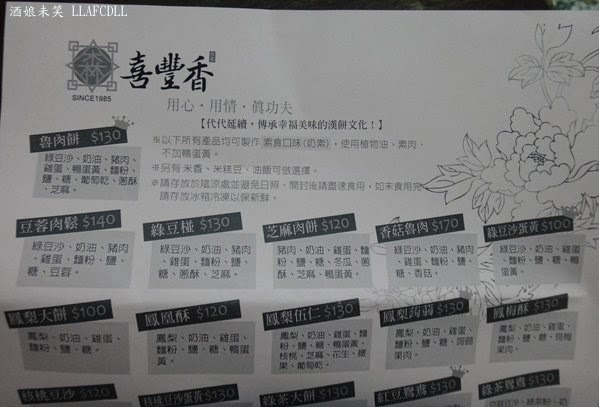 酒娘未笑 LLAFCDLL
喜豐香
SINCE1985
用心・用情・眞功夫
【代代延續，傳承幸福美味的漢餅文化！】
※以下所有產品均可製作 素食口味(奶素)，使用植物油、素肉、
不加鴨蛋黃。
※另有 米香、米糕豆、油飯可做選擇。
※請存放於陰涼處並避免日照，開封後請盡速食用，如未食用完
請存放冰箱冷凍以保新鮮。
魯肉餅 $130
綠豆沙、奶油、豬肉
、雞蛋、鴨蛋黃、麵粉
、鹽、糖、葡萄乾、蔥酥
、芝麻。
豆蓉肉鬆 $140
綠豆沙、奶油、豬肉
、雞蛋、麵粉、鹽、
糖、豆蓉。
綠豆椪 $130
綠豆沙、奶油、豬肉
、雞蛋、麵粉、鹽、
糖、蔥酥、芝麻。
芝麻肉餅 $120
豬肉、奶油、雞蛋、麵
粉、鹽、糖、冬瓜、蔥
酥、芝麻、鴨蛋黃。
香菇魯肉 $170
綠豆沙、奶油、豬肉
、雞蛋、麵粉、鹽、
糖、香菇。
綠豆沙蛋黃 $100
綠豆沙、奶油、雞
蛋、麵粉、鹽、糖、鴨
蛋黃。
鳳梨大餅 $100
鳳梨、奶油、雞蛋、
麵粉、鹽、糖。
鳳凰酥 $120
鳳梨、奶油、雞蛋、
麵粉、鹽、糖、鴨蛋
黃。
鳳梨伍仁 $130
鳳梨、奶油、雞蛋、麵
粉、鹽、糖、鴨蛋黃、
核桃、芝麻、花生、腰
果、葡萄乾。
鳳梨蒟蒻 $130
鳳梨、奶油、雞蛋、
麵粉、鹽、糖、蒟蒻
果肉。
鳳梅酥 $130
鳳梨、奶油、雞蛋、
麵粉、鹽、糖、烏梅
果肉。
核桃豆沙 $120
核桃豆沙蛋黃 $130
綠茶大餅 $130
紅豆鴛鴦 $130
綠茶鴛鴦 $130